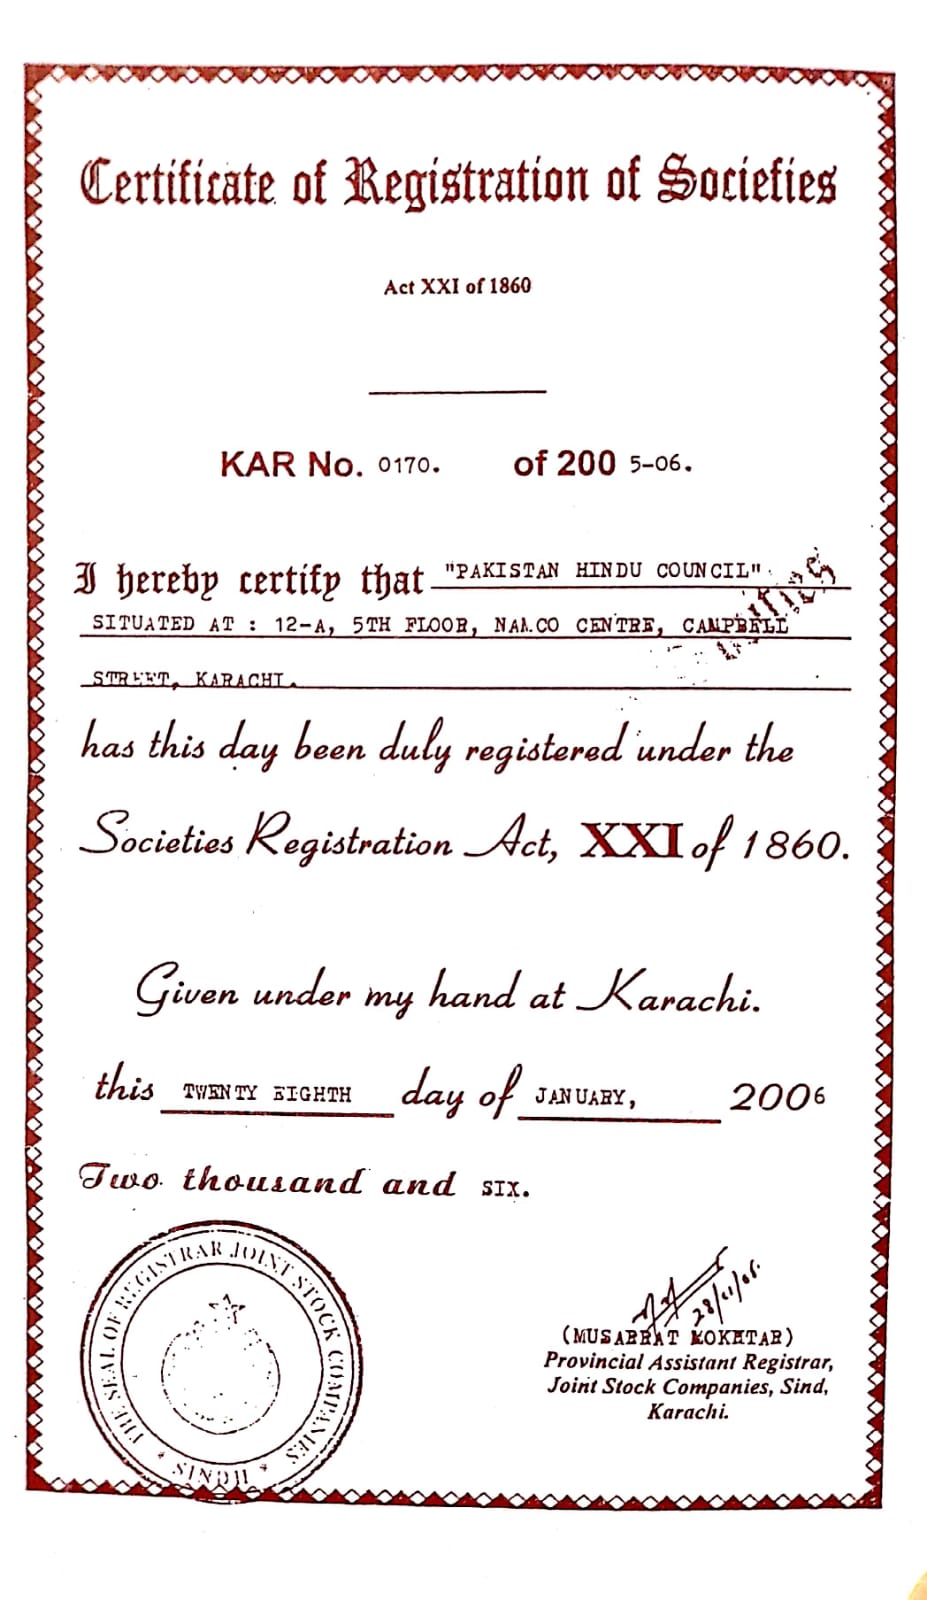 Certificate of Registration of Societies
Act XXI of 1860
KAR No. 0170. of 200 5-06.
I hereby certify that "PAKISTAN HINDU COUNCIL"
SITUATED AT : 12-A, 5TH FLOOR, CENTRE, CAMPBELL
STREET, KARACHI.
has this day been duly registered under the
Societies Registration Act, XXI of 1860.
Given under my hand at Karachi.
this TWENTY EIGHTH day of JANUARY, 2006
Two thousand and SIX.
THE SEAL OF REGISTRAR JOINT STOCK COMPANIES
* SINDH *
(MUSARRAT MOKHTAR)
Provincial Assistant Registrar,
Joint Stock Companies, Sind,
Karachi.